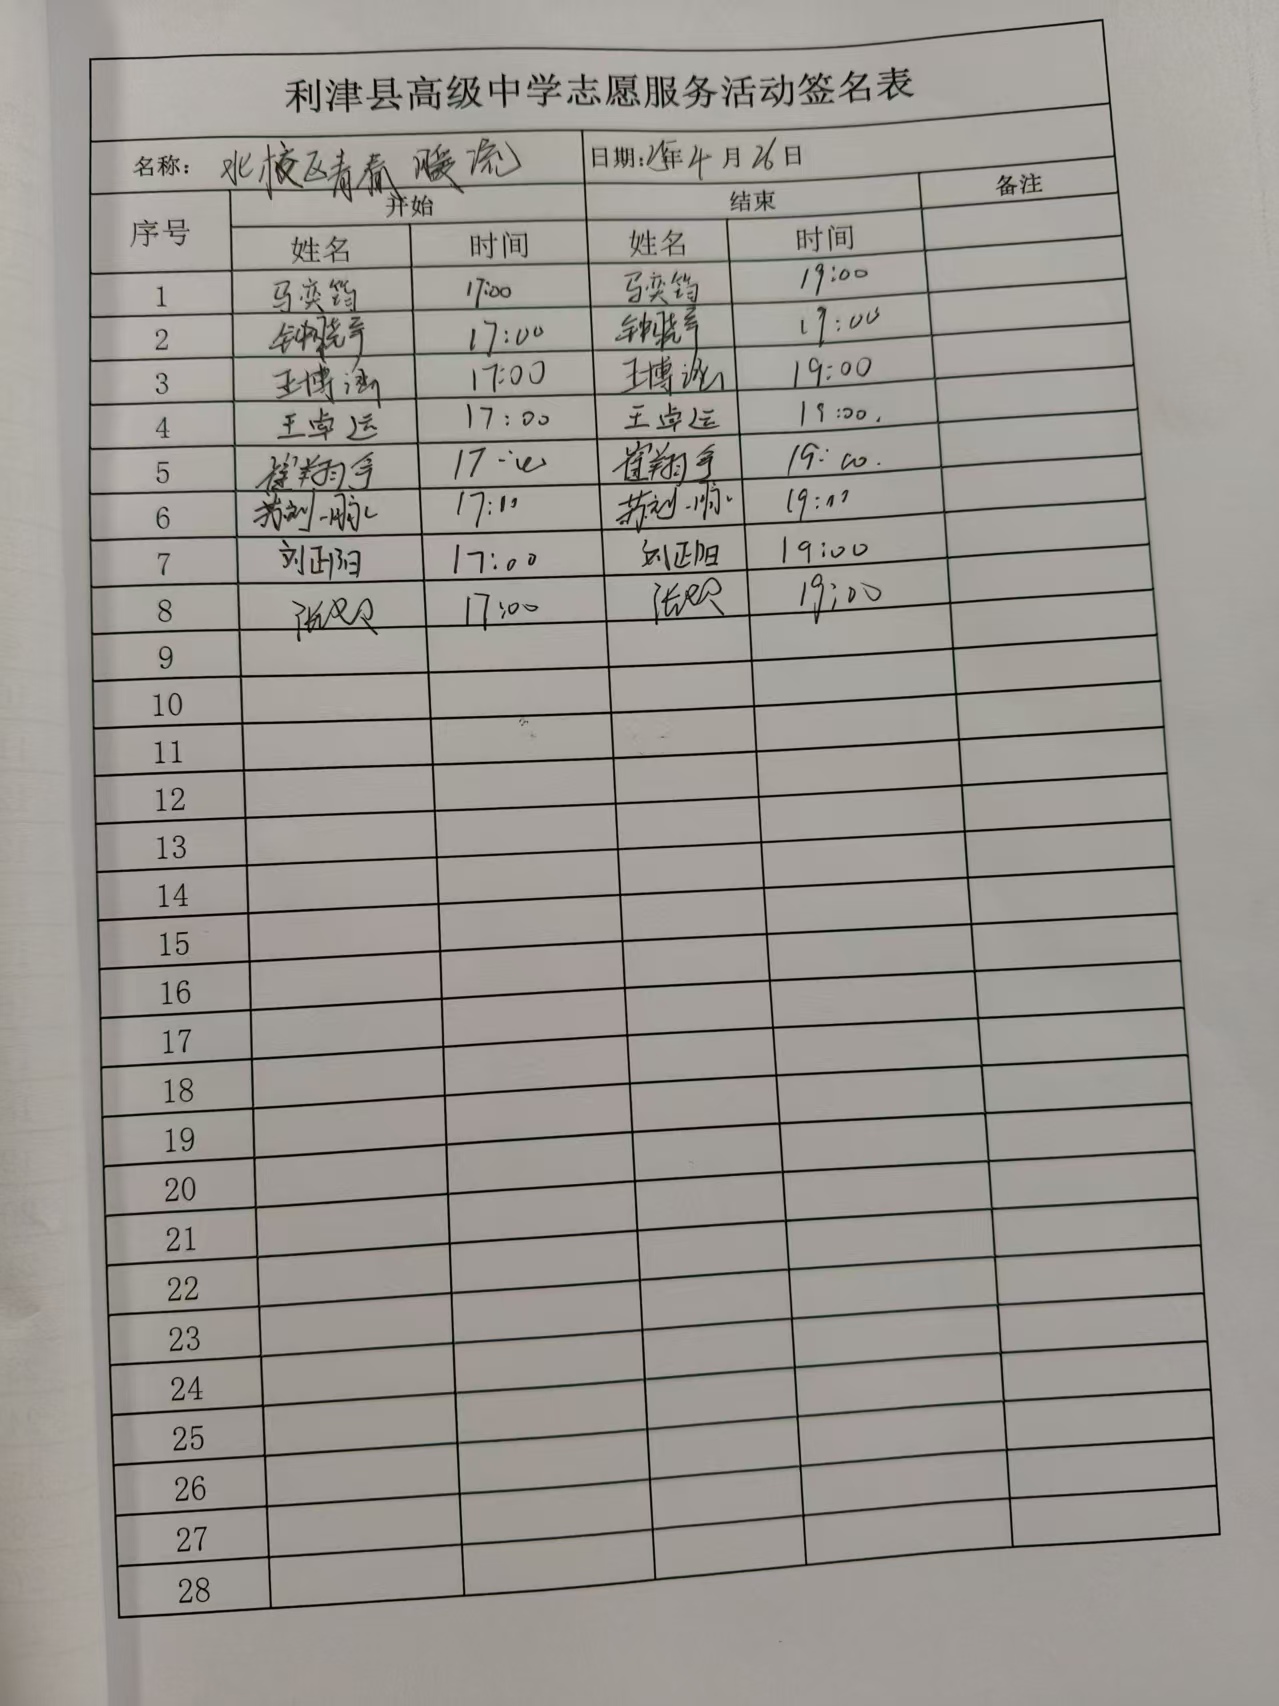 利津县高级中学志愿服务活动签名表
名称: 北校区青春暖流 日期:25年4月26日
序号 开始 结束 备注
姓名 时间 姓名 时间
1 马奕筠 17:00 马奕筠 19:00
2 17:00 19:00
3 王博涵 17:00 王博涵 19:00
4 王卓运 17:00 王卓运 19:00.
5 崔翔宇 17:00 崔翔宇 19:00.
6 17:00 19:00
7 刘正阳 17:00 刘正阳 19:00
8 17:00 19:00
9
10
11
12
13
14
15
16
17
18
19
20
21
22
23
24
25
26
27
28